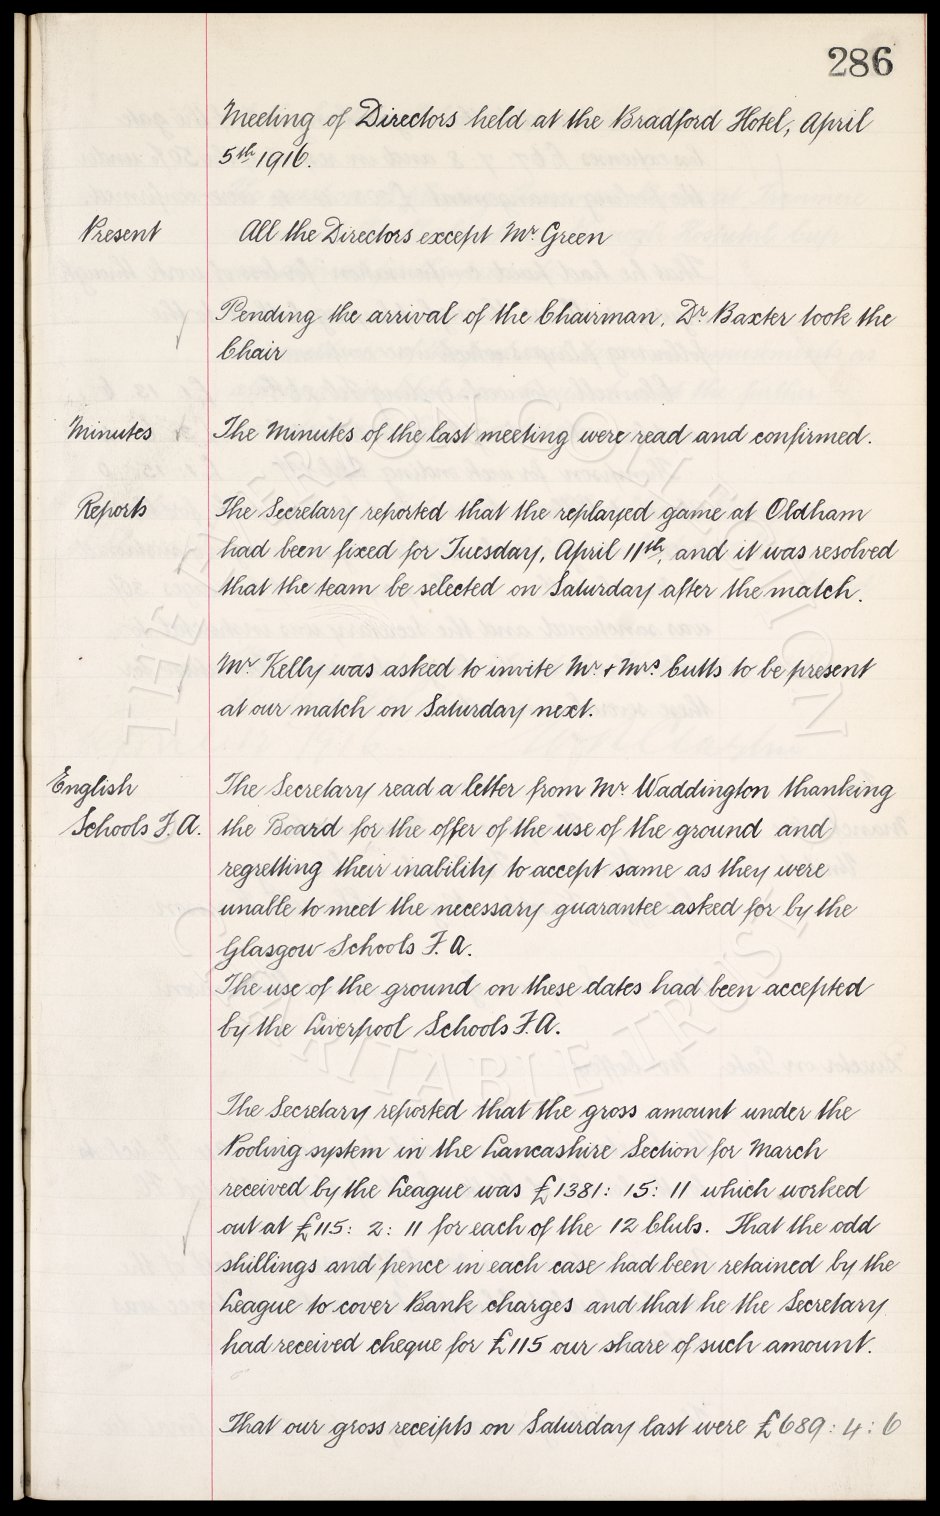 286
Meeting of Directors held at the Bradford Hotel, April
5th 1916.
Present
All the Directors except Mr Green
Pending the arrival of the Chairman, Dr Baxter took the
Chair
Minutes
The Minutes of the last meeting were read and confirmed.
Reports
The Secretary reported that the replayed game at Oldham
had been fixed for Tuesday, April 11th, and it was resolved
that the team be selected on Saturday after the match.
Mr Kelly was asked to invite Mr & Mrs. Cutts to be present
at our match on Saturday next.
English
Schools F. A.
The Secretary read a letter from Mr Waddington thanking
the Board for the offer of the use of the ground and
regretting their inability to accept same as they were
unable to meet the necessary guarantee asked for by the
Glasgow Schools F. A.
The use of the ground on these dates had been accepted
by the Liverpool Schools F. A.
The Secretary reported that the gross amount under the
Pooling system in the Lancashire Section for March
received by the League was £1381: 15: 11 which worked
out at £115: 2: 11 for each of the 12 Clubs. That the odd
shillings and pence in each case had been retained by the
League to cover Bank charges and that he the Secretary
had received cheque for £115 our share of such amount.
That our gross receipts on Saturday last were £689: 4: 6
THE EVERTON COLLECTION
CHARITABLE TRUST